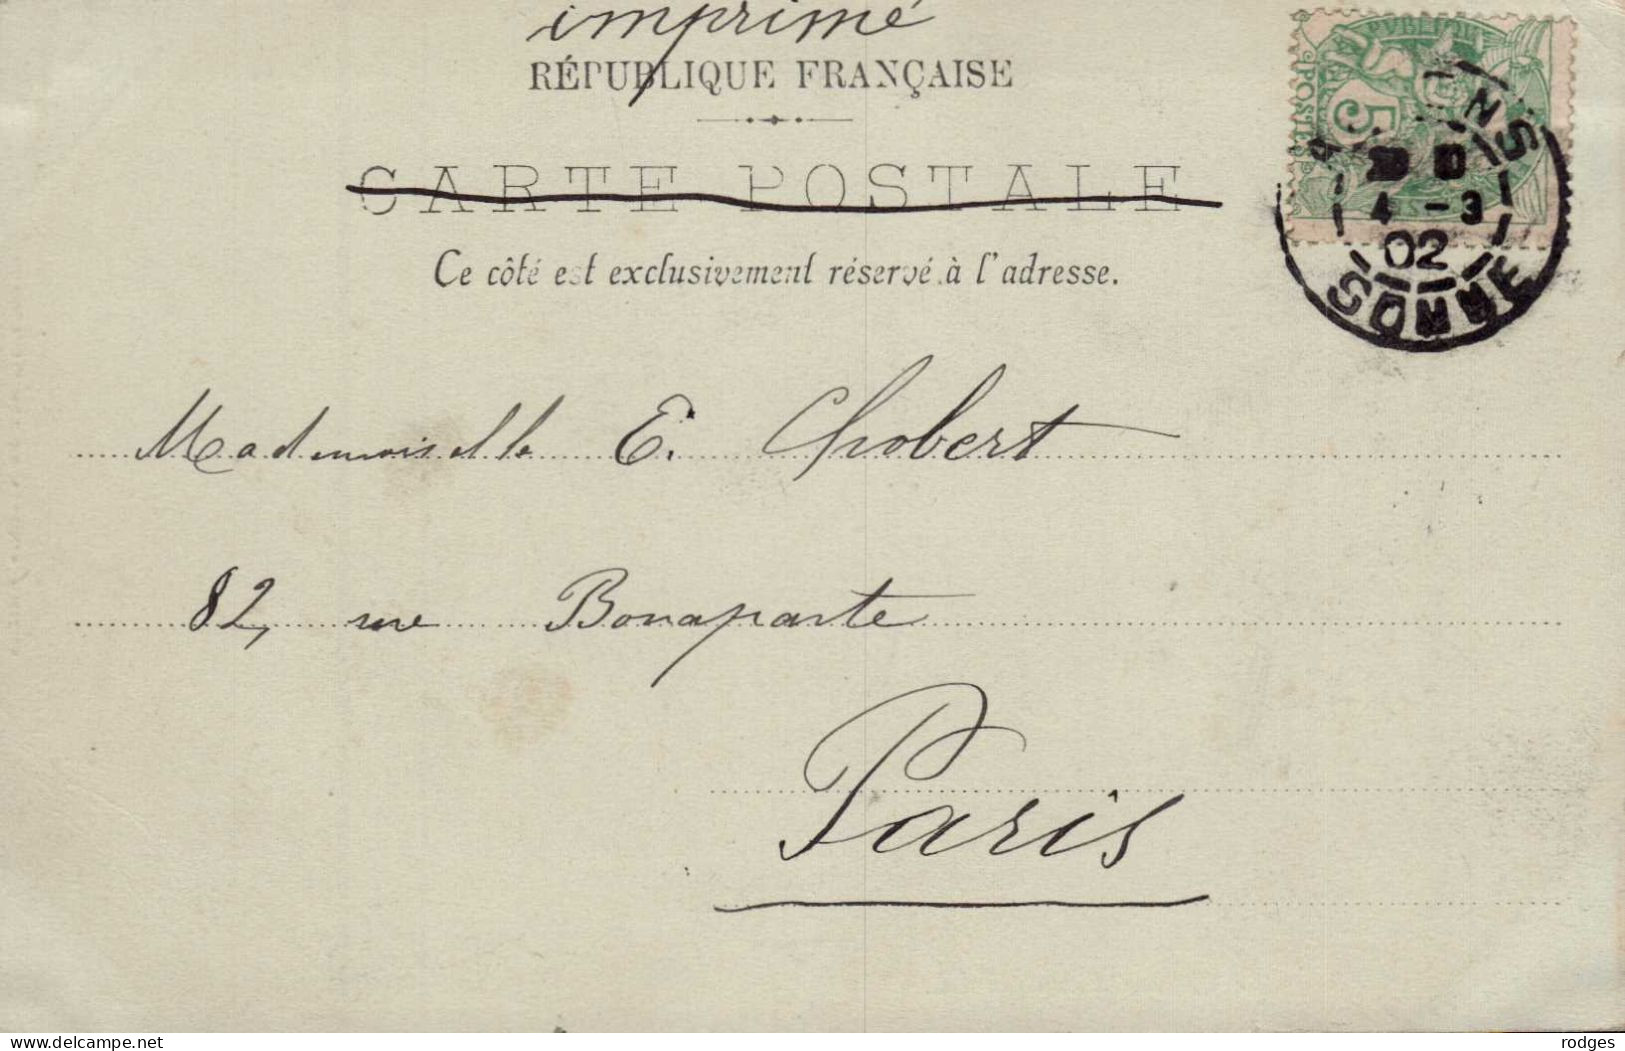 imprimé
RÉPUBLIQUE FRANÇAISE
CARTE POSTALE
Ce côté est exclusivement réservé à l'adresse.
PUBLIQUE
POSTES
5
NS
4 - 3
02
SOMME
Mademoiselle E. Chobert
82, rue Bonaparte
Paris
rodges